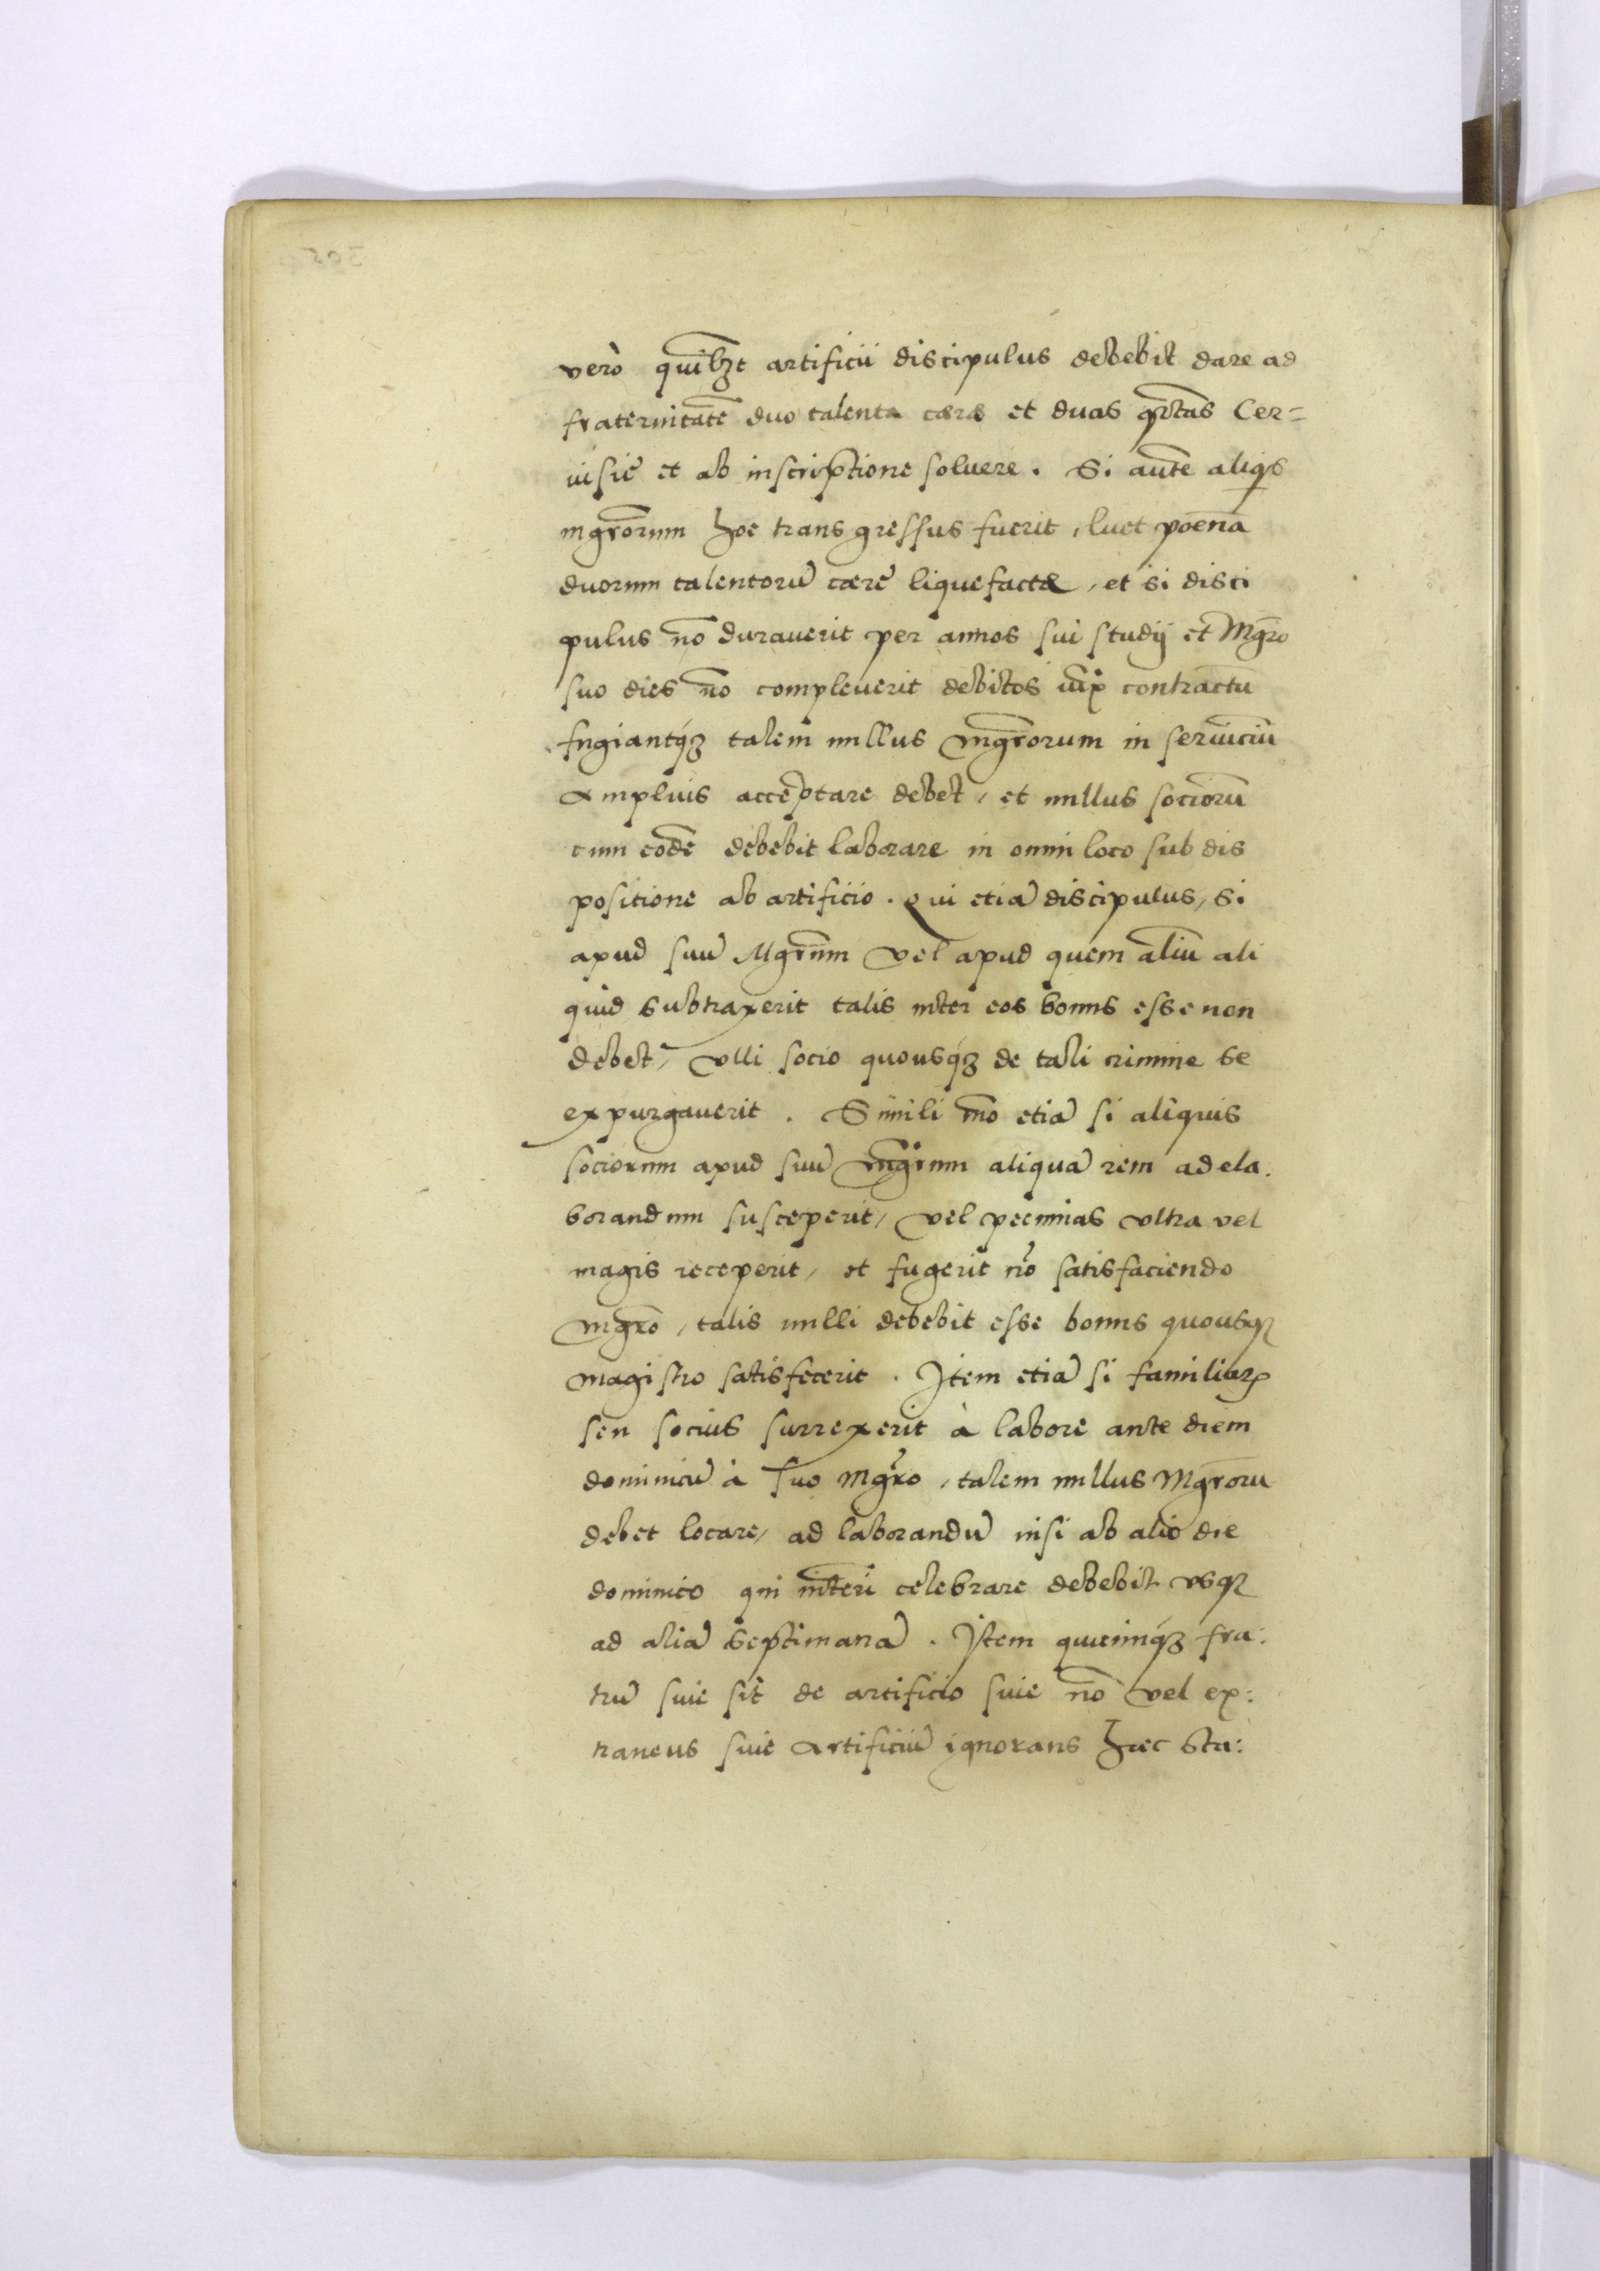 verò quilꝫt artificii discipulus debebit dare ad
fraternitatē duo talenta cæræ et duas qrtas Cer=
uisię et ab inscriptione soluere. Si autē aliqs
mgrorum hoc transgressus fuerit, luet poenā
duorum talentorū cærę liquefactæ, et si disci
pulus nō durauerit per annos sui studij et Mgro
suo dies nō compleuerit debitos contractu
fugiantqꝫ talem nullus mgrorum in seruiciū
amplius acceptare debet, et nullus sociorū
cum eodē debebit laborare in omni loco sub dis
positione ab artificio. Qui etiā discipulus, si
apud suū Mgrum vel apud quem aliū ali
quid subtraxerit talis inter eos bonus esse non
debet, vlli socio quousqꝫ de tali crimine se
expurgauerit. Simili mō etiā si aliquis
sociorum apud suū mgrum aliquā rem ad ela.
borandum susceperit, vel pecunias vltra vel
magis receperit, et fugerit nō satisfaciendo
mgrō, talis nulli debebit esse bonus quousqꝫ
magistro satisfecerit. Item etiā si familiarꝭ
seu socius surrexerit à labore ante diem
dominicū à suo Mgro, talem nullus Mgrorū
debet locare, ad laborandū nisi ab alio die
dominico qui interī celebrare debebit vsqꝫ
ad aliā septimanā. Item quicunqꝫ fra:
trū siue sit de artificio siue nō vel ex:
traneus siue artificiū ignorans hæc sta: